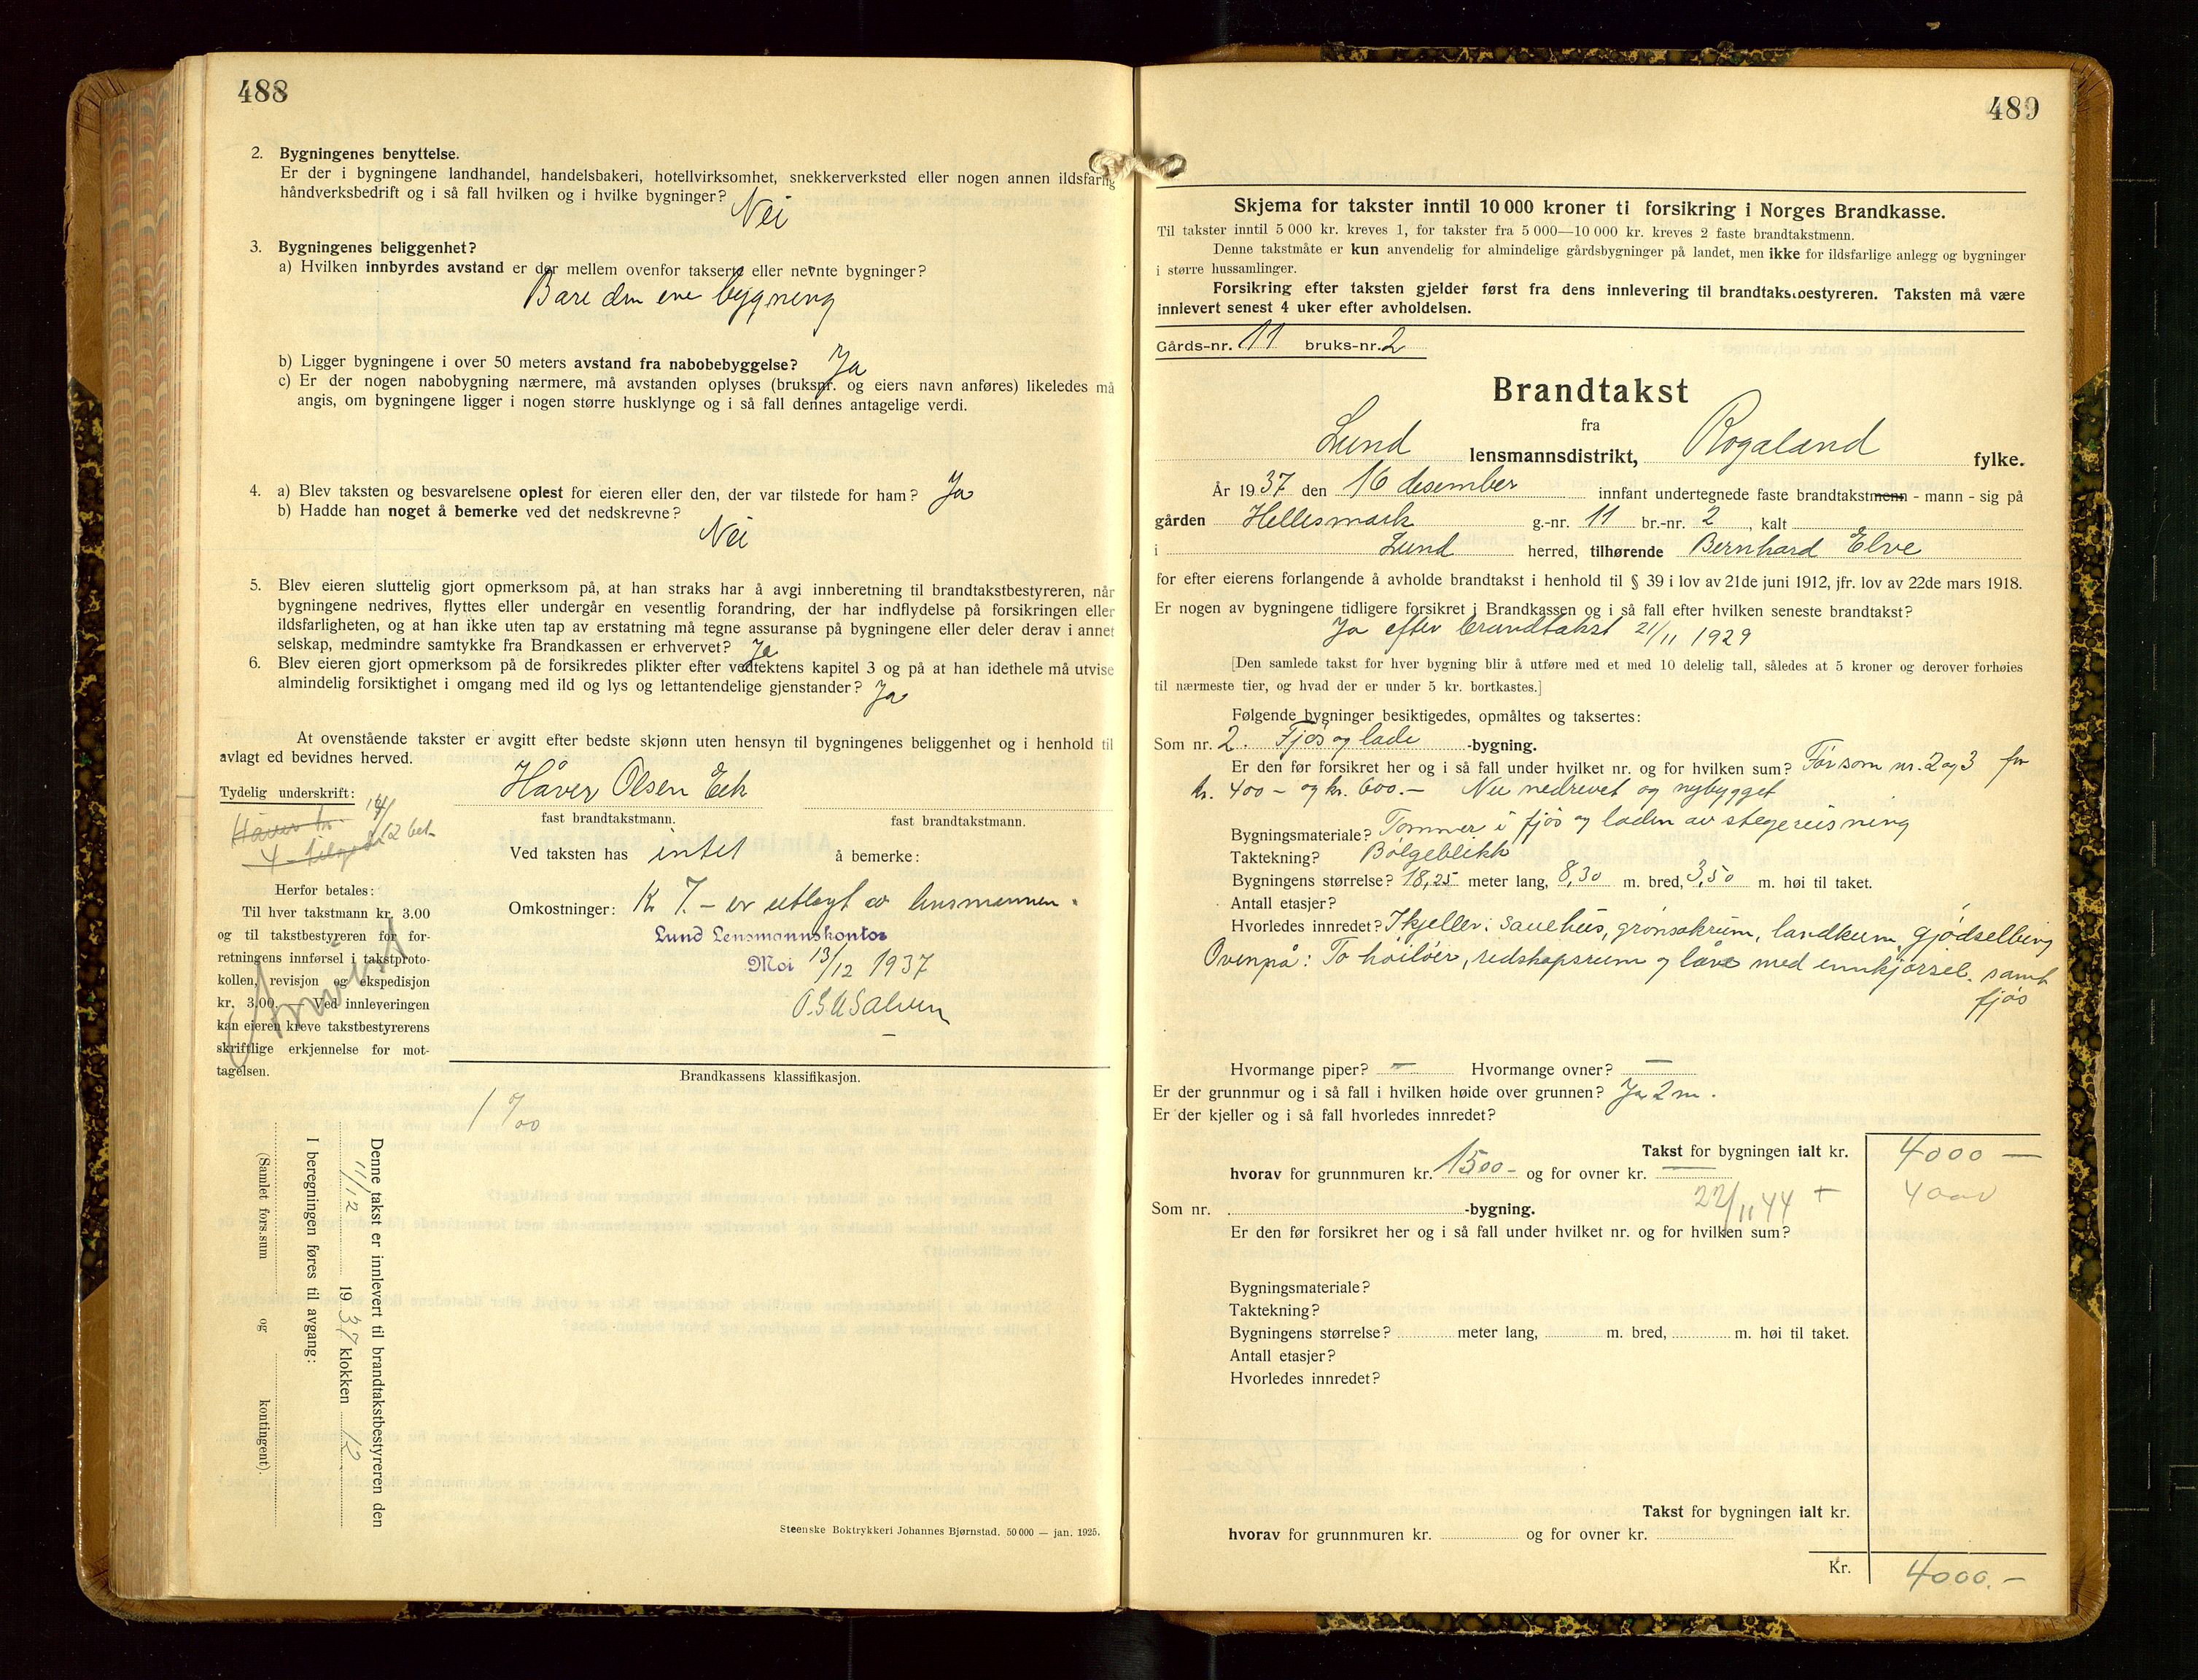 488
2. Bygningenes benyttelse.
Er der i bygningene landhandel, handelsbakeri, hotellvirksomhet, snekkerverksted eller nogen annen ildsfarlig
håndverksbedrift og i så fall hvilken og i hvilke bygninger? Nei
3. Bygningenes beliggenhet?
a) Hvilken innbyrdes avstand er der mellem ovenfor takserte eller nevnte bygninger?
Bare den ene bygning
b) Ligger bygningene i over 50 meters avstand fra nabobebyggelse? Ja
c) Er der nogen nabobygning nærmere, må avstanden oplyses (bruksnr. og eiers navn anføres) likeledes må
angis, om bygningene ligger i nogen større husklynge og i så fall dennes antagelige verdi.
4. a) Blev taksten og besvarelsene oplest for eieren eller den, der var tilstede for ham? Ja
b) Hadde han noget å bemerke ved det nedskrevne?
Nei
5. Blev eieren sluttelig gjort opmerksom på, at han straks har å avgi innberetning til brandtakstbestyreren, når
bygningene nedrives, flyttes eller undergår en vesentlig forandring, der har indflydelse på forsikringen eller
ildsfarligheten, og at han ikke uten tap av erstatning må tegne assuranse på bygningene eller deler derav i annet
selskap, medmindre samtykke fra Brandkassen er erhvervet? Ja
6. Blev eieren gjort opmerksom på de forsikredes plikter efter vedtektens kapitel 3 og på at han idethele må utvise
almindelig forsiktighet i omgang med ild og lys og lettantendelige gjenstander? Ja
At ovenstående takster er avgitt efter bedste skjønn uten hensyn til bygningenes beliggenhet og i henhold til
avlagt ed bevidnes herved.
Tydelig underskrift: Håver Olsen Eek
fast brandtakstmann. fast brandtakstmann.
Ved taksten has intet å bemerke:
Omkostninger: Kr 7.- er utlagt av lensmannen.
Lund Lensmannskontor
Moi 13/12 1937
Herfor betales:
Til hver takstmann kr. 3.00
og til takstbestyreren for for-
retningens innførsel i takstproto-
kollen, revisjon og ekspedisjon
kr. 3.00. — Ved innleveringen
kan eieren kreve takstbestyrerens
skriftlige erkjennelse for mot-
tagelsen.
Brandkassens klassifikasjon.
1 0/00
Denne takst er innlevert til brandtakstbestyreren den
11/12 1937 klokken 12
I beregningen føres til avgang:
(Samlet fors.sum og kontingent).
Steenske Boktrykkeri Johannes Bjørnstad. 50 000 — jan. 1925.
489
Skjema for takster inntil 10 000 kroner ti forsikring i Norges Brandkasse.
Til takster inntil 5 000 kr. kreves 1, for takster fra 5 000—10 000 kr. kreves 2 faste brandtakstmenn.
Denne takstmåte er kun anvendelig for almindelige gårdsbygninger på landet, men ikke for ildsfarlige anlegg og bygninger
i større hussamlinger.
Forsikring efter taksten gjelder først fra dens innlevering til brandtakstbestyreren. Taksten må være
innlevert senest 4 uker efter avholdelsen.
Gårds-nr. 11 bruks-nr. 2
Brandtakst
fra
Lund lensmannsdistrikt, Rogaland fylke.
År 1937 den 16 desember innfant undertegnede faste brandtakstmenn - mann - sig på
gården Hellesmark g.-nr. 11 br.-nr. 2, kalt
i Lund herred, tilhørende Bernhard Elve
for efter eierens forlangende å avholde brandtakst i henhold til § 39 i lov av 21de juni 1912, jfr. lov av 22de mars 1918.
Er nogen av bygningene tidligere forsikret i Brandkassen og i så fall efter hvilken seneste brandtakst?
Ja efter brandtakst 21/11 1929
[Den samlede takst for hver bygning blir å utføre med et med 10 delelig tall, således at 5 kroner og derover forhøies
til nærmeste tier, og hvad der er under 5 kr. bortkastes.]
Følgende bygninger besiktigedes, opmåltes og taksertes:
Som nr. 2. Fjøs og lade -bygning.
Er den før forsikret her og i så fall under hvilket nr. og for hvilken sum? Før som nr. 2 og 3 for
kr. 400 - og kr. 600.- Nu nedrevet og nybygget
Bygningsmateriale? Tømmer i fjøs og laden av stegereisning
Taktekning? Bølgeblikk
Bygningens størrelse? 18,25 meter lang, 8,30 m. bred, 3,50 m. høi til taket.
Antall etasjer?
Hvorledes innredet? I kjeller: sauehus, grønsakrum, landkum, gjødselbing
Ovenpå: To høiløer, redskapsrum og låve med innkjørsel. samt
fjøs
Hvormange piper? — Hvormange ovner? —
Er der grunnmur og i så fall i hvilken høide over grunnen? Ja 2 m.
Er der kjeller og i så fall hvorledes innredet?
Takst for bygningen ialt kr. 4000 —
hvorav for grunnmuren kr. 1500- og for ovner kr. —
22/11 44 + 4000
Som nr. -bygning.
Er den før forsikret her og i så fall under hvilket nr. og for hvilken sum?
Bygningsmateriale?
Taktekning?
Bygningens størrelse? meter lang, m. bred, m. høi til taket.
Antall etasjer?
Hvorledes innredet?
Takst for bygningen ialt kr.
hvorav for grunnmuren kr. og for ovner kr.
Kr. 4000.-